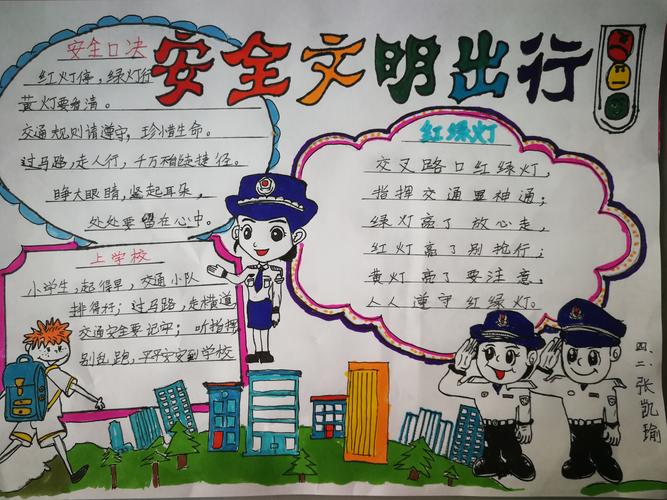 安全文明出行
安全口决
红灯停，绿灯行
黄灯要看清。
交通规则请遵守，珍惜生命。
过马路，走人行，千万别走捷径。
睁大眼睛，竖起耳朵，
处处要留在心中。
上学校
小学生，起得早，交通小队
排得好；过马路，走横道
交通安全要记牢；听指挥
别乱跑，平平安安到学校
红绿灯
交叉路口红绿灯，
指挥交通显神通；
绿灯亮了放心走，
红灯亮了别抢行；
黄灯亮了要注意，
人人遵守红绿灯。
四、二、张凯瑜